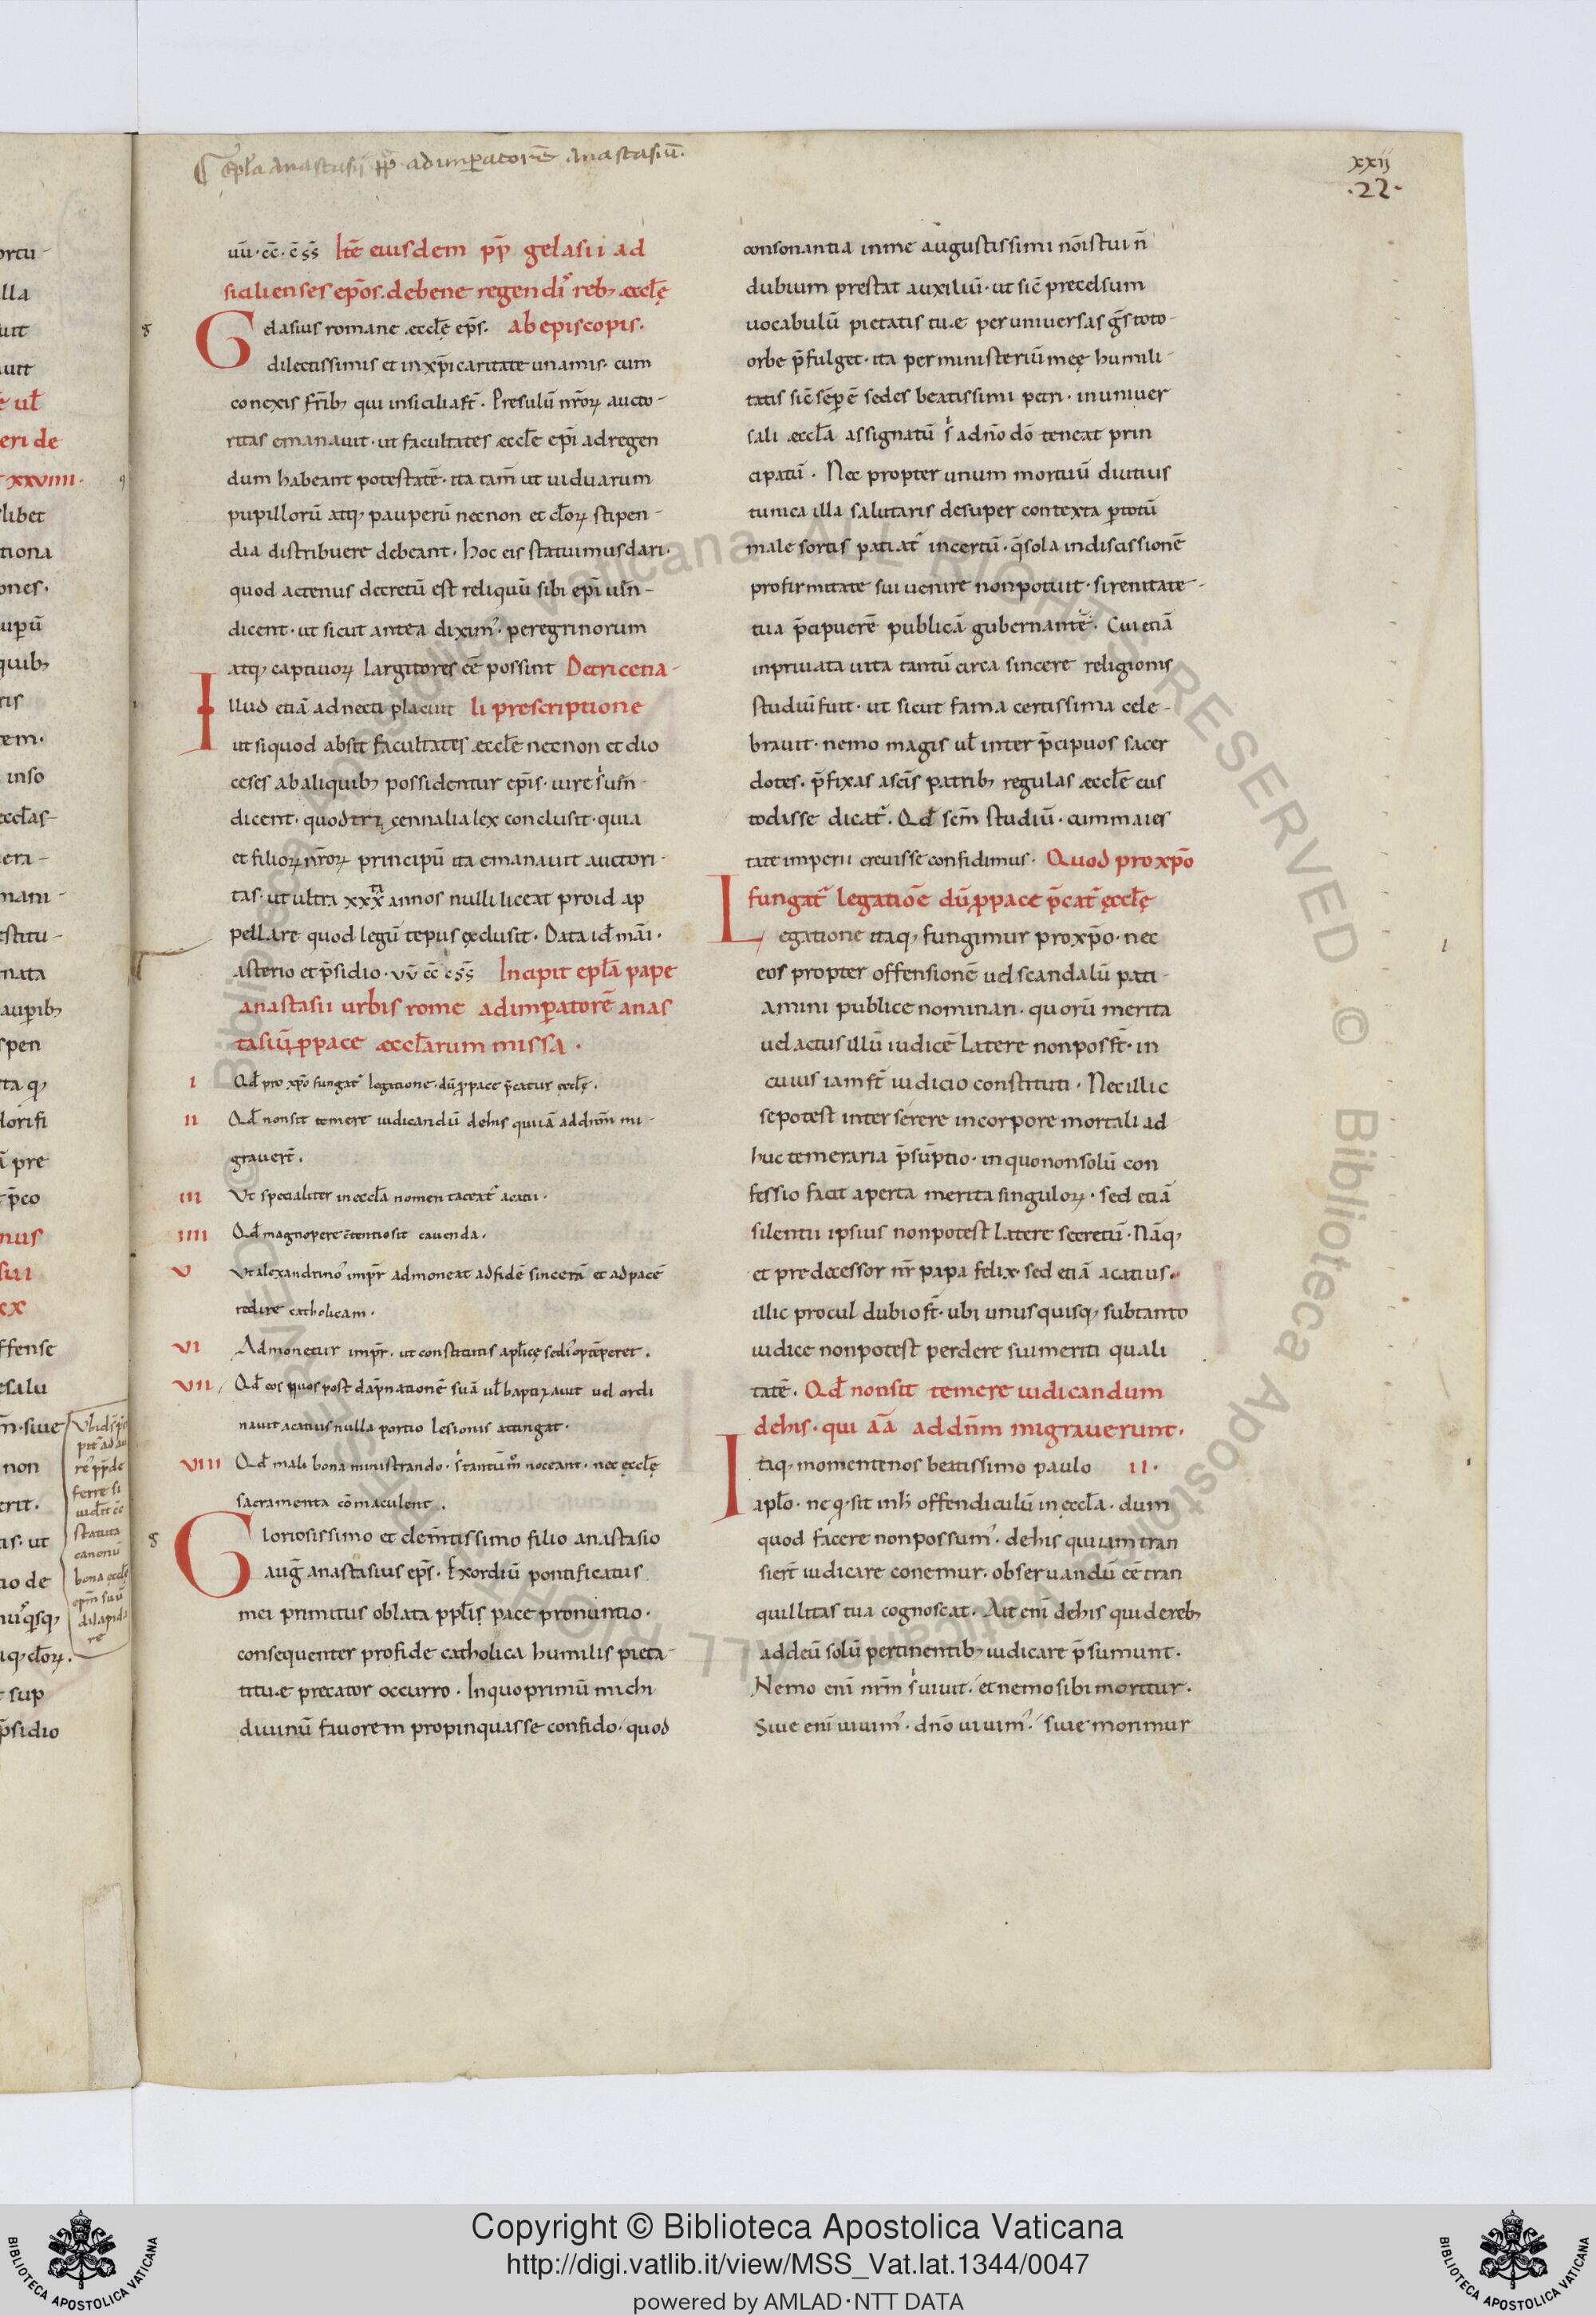 Epła anastasij pp̄ ad imꝑatorē anastasiū.
xxij
.22.
uū. cc̄. c̄ ss̄ Itē eiusdem pp̄ gelasii ad
sicilienses ep̄os. de bene regendiˀ rebꝫ æccłę
Gelasius romane æccłę ep̄s. ab episcopis.
dilectissimis et in xp̄i caritate unamis. cum
conexis fr̄ibꝫ qui in sicilia st̄. Presulū nr̄oꝝ aucto-
ritas emanauit. ut facultates æccłe ep̄i ad regen
dum habeant potestatē. ita tam̄ ut uiduarum
pupillorū atqꝫ pauperū necnon et cłoꝝ stipen-
dia distribuere debeant. hoc eis statuimus dari.
quod actenus decretū est reliquū sibi ep̄i usn̄-
dicent. ut sicut antea diximˀ. peregrinorum
atqꝫ captiuoꝝ largitores eē possint De tricena-
Illud etiā adnecti placuit li prescriptione
ut siquod absit facultates æccłe necnon et dio
ceses ab aliquibꝫ possidentur ep̄is. uire s̓ usn̄-
dicent. quod tricennalia lex conclusit. quia
et filioꝝ nr̄oꝝ principū ita emanauit auctori-
tas. ut ultra xxx ta annos nulli liceat pro id ap
pellare quod legū tepus exclusit. Data id māi.
asterio et p̄sidio. vv̄ cc̄ c̄ ss̄ Incipit epła pape
anastasii urbis rome ad imꝑatorē anas
tasiū ꝓ pace æccłarum missa.
I Qd̄ pro xp̄o fungatˀ legatione. dū ꝓ pace p̄catur æccłę.
II Qd̄ non sit temere iudicandū de his qui iā ad dn̄m mi-
grauer̄t.
III Ut specialiter in eccła nomen taceatˀ acatii.
IIII Qd̄ magnopere c̄tentio sit cauenda.
V Ut alexandrinoˀ impr̄ admoneat ad fidē sincerā et ad pacē
redire catholicam.
VI Admonetur impr̄. ut constitutis apłicę sediˀ optēperet.
VII Qd̄ eos quos post dāpnationē suā uł baptizauit uel ordi
nauit acatius nulla portio lesionis attingat.
VIII Qd̄ mali bona ministrando. s̓ tantūmo noceant. nec ęccłę
sacramenta cōmaculent.
Gloriosissimo et clem̄tissimo filio anastasio
aug̃ anastasius ep̄s. Exordiū pontificatus
mei primitus oblata pplīs pace pronuntio.
consequenter pro fide catholica humilis pieta-
ti tu.e precator occurro. In quo primū michi
diuinū fauorem propinquasse confido. quod
consonantia in me augustissimi nōis tui n̄
dubium prestat auxiliū. ut sic̄ precelsum
uocabulū pietatis tu.e per uniuersas gn̄s toto-
orbe p̄fulget. ita per ministeriū meę humili-
tatis sic̄ sēꝑ ē sedes beatissimi petri. in uniuer
sali æccła assignatū s̓ a dn̄o dō teneat prin
cipatū. Nec propter unum mortuū diutius
tunica illa salutaris desuper contexta ꝑ totū
male sortis patiatˀ incertū. q̄ sola in discissionē
pro firmitate sui uenire non potuit. sirenitate-
tua p̄cipuerē publicā gubernante. Cui etiā
in priuata uita tantū circa sincere religionis
studiū fuit. ut sicut fama certissima cele-
brauit. nemo magis uł inter p̄cipuos sacer
dotes. p̄fixas a sc̄is patribꝫ regulas æccłe cus
todisse dicatˀ. Qd̄ sc̄m studiū. cum maies
tate imperii creuisse confidimus. Quod pro xp̄o
fungatˀ legatiōe dū ꝓ pace p̄catˀ ęccłę
Legatione itaqꝫ fungimur pro xp̄o. nec
eos propter offensionē uel scandalū pati-
amini publice nominari. quorū merita
uel actus illū iudicē latere non poss̄t. in
cuius iam st̄ iudicio constituti. Nec illic
se potest inter serere in corpore mortali ad
huc temeraria p̄sūptio. in quo non solū con
fessio facit aperta merita singuloꝝ. sed etiā
silentii ipsius non potest latere secretū. Nāqꝫ
et predecessor nr̄ papa felix. sed etiā acatius.
illic procul dubio st̄. ubi unus quisqꝫ sub tanto
iudice non potest perdere sui meriti quali
tatē. Qd̄ non sit temere iudicandum
de his. qui āā ad dn̄m migrauerunt.
Itaqꝫ momente nos beatissimo paulo II.
apło. ne q. sit inh̓ offendiculū in eccła. dum
quod facere non possumˀ. de his qui iam tran
sier̄t iudicare conemur. obseruandū eē tran
quillitas tua cognoscat. Ait enī de his qui de rebꝫ
ad deū solū pertinentibꝫ iudicare p̄sumunt.
Nemo enī nr̄m s̓ uiuit. et nemo sibi moritur.
Siue enī uiuimˀ. dn̄o uiuimˀ. siue morimur
Copyright © Biblioteca Apostolica Vaticana
http://digi.vatlib.it/view/MSS_Vat.lat.1344/0047
powered by AMLAD·NTT DATA